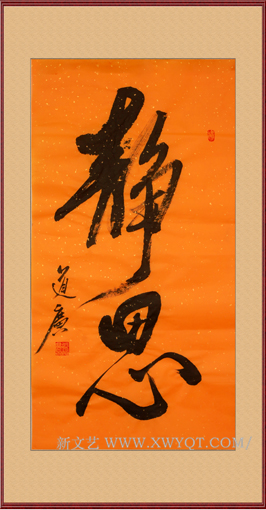 静思
道廣
新文艺 WWW.XWYQT.COM/